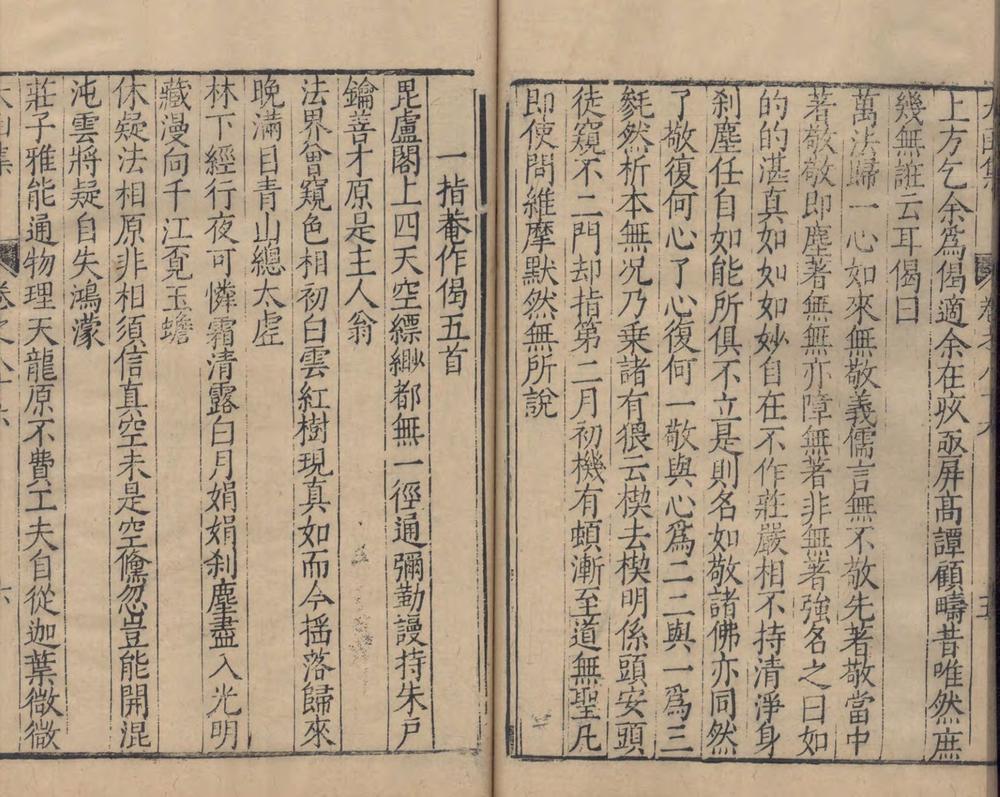 上方乞余爲偈適余在疚亟屏高譚顧疇昔唯然庶
幾無誑云耳偈曰
萬法歸一心如來無敬義儒言無不敬先著敬當中
著敬敬即塵著無無亦障無著非無著強名之曰如
的的湛真如如如妙自在不作莊嚴相不持清淨身
剎塵任自如能所俱不立是則名如敬諸佛亦同然
了敬復何心了心復何一敬與心爲二二與一爲三
毿然析本無况乃乗諸有猥云楔去楔明係頭安頭
徒窺不二門却指第二月初機有頓漸至道無聖凡
即使問維摩默然無所說
一指菴作偈五首
毘盧閣上四天空縹緲都無一徑通彌勤謾持朱戸
鑰善才原是主人翁
法界曾窺色相初白雲紅樹現真如而今揺落歸來
晚滿目青山總太虛
林下經行夜可憐霜清露白月娟娟剎塵盡入光明
藏漫向千江覔玉蟾
休疑法相原非相須信真空未是空儵忽豈能開混
沌雲將疑自失鴻濛
莊子雅能通物理天龍原不費工夫自從迦葉微微